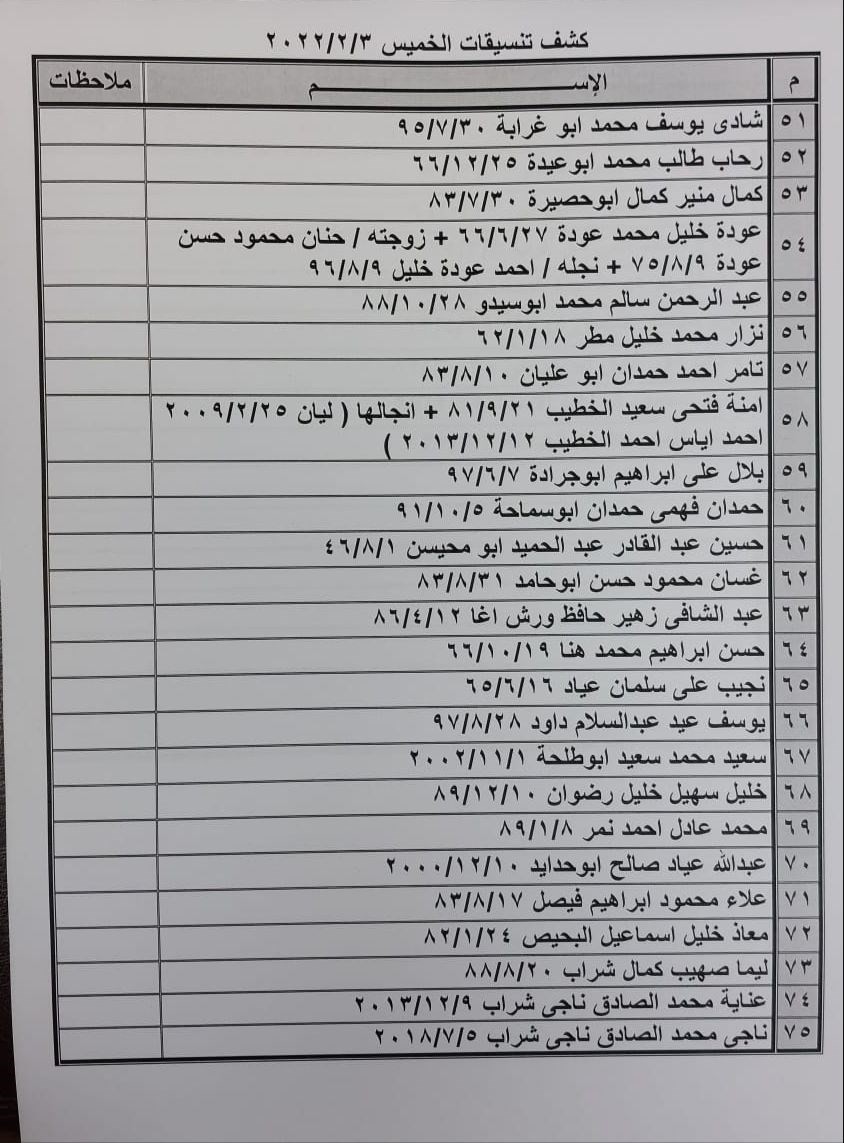 كشف تنسيقات الخميس ٢٠٢٢/٢/٣
م الإســـــــــم ملاحظات
٥١ شادى يوسف محمد ابو غرابة ٩٥/٧/٣٠
٥٢ رحاب طالب محمد ابوعيدة ٦٦/١٢/٢٥
٥٣ كمال منير كمال ابوحصيرة ٨٣/٧/٣٠
٥٤ عودة خليل محمد عودة ٦٦/٦/٢٧ + زوجته / حنان محمود حسن
عودة ٧٥/٨/٩ + نجله / احمد عودة خليل ٩٦/٨/٩
٥٥ عبد الرحمن سالم محمد ابوسيدو ٨٨/١٠/٢٨
٥٦ نزار محمد خليل مطر ٦٢/١/١٨
٥٧ تامر احمد حمدان ابو عليان ٨٣/٨/١٠
٥٨ امنة فتحى سعيد الخطيب ٨١/٩/٢١ + انجالها ( ليان ٢٠٠٩/٢/٢٥
احمد اياس احمد الخطيب ٢٠١٣/١٢/١٢ )
٥٩ بلال على ابراهيم ابوجرادة ٩٧/٦/٧
٦٠ حمدان فهمى حمدان ابوسماحة ٩١/١٠/٥
٦١ حسين عبد القادر عبد الحميد ابو محيسن ٤٦/٨/١
٦٢ غسان محمود حسن ابوحامد ٨٣/٨/٣١
٦٣ عبد الشافى زهير حافظ ورش اغا ٨٦/٤/١٢
٦٤ حسن ابراهيم محمد هنا ٦٦/١٠/١٩
٦٥ نجيب على سلمان عياد ٦٥/٦/١٦
٦٦ يوسف عيد عبدالسلام داود ٩٧/٨/٢٨
٦٧ سعيد محمد سعيد ابوطلحة ٢٠٠٢/١١/١
٦٨ خليل سهيل خليل رضوان ٨٩/١٢/١٠
٦٩ محمد عادل احمد نمر ٨٩/١/٨
٧٠ عبدالله عياد صالح ابوحدايد ٢٠٠٠/١٢/١٠
٧١ علاء محمود ابراهيم فيصل ٨٣/٨/١٧
٧٢ معاذ خليل اسماعيل البحيص ٨٢/١/٢٤
٧٣ ليما صهيب كمال شراب ٨٨/٨/٢٠
٧٤ عناية محمد الصادق ناجى شراب ٢٠١٣/١٢/٩
٧٥ ناجى محمد الصادق ناجى شراب ٢٠١٨/٧/٥